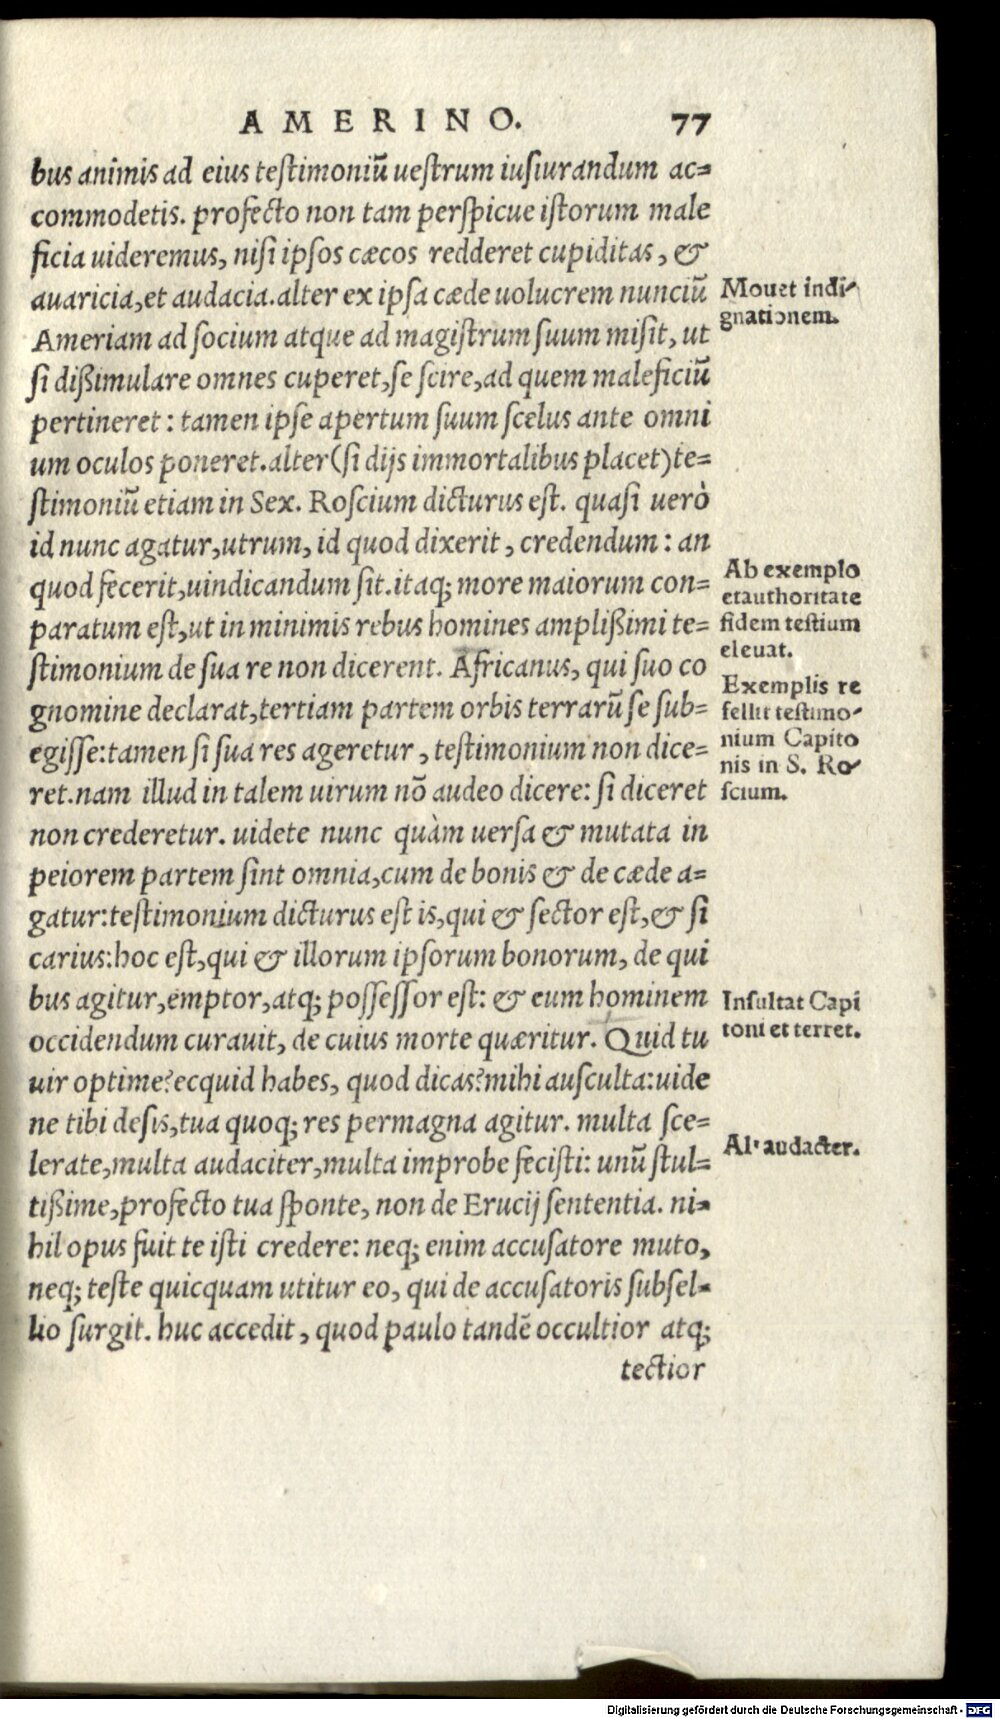 AMERINO. 77
bus animis ad eius testimoniũ uestrum iusiurandum ac=
commodetis. profecto non tam perspicue istorum male
ficia uideremus, nisi ipsos cæcos redderet cupiditas, &
auaricia, et audacia. alter ex ipsa cæde uolucrem nunciũ
Ameriam ad socium atque ad magistrum suum misit, ut
si dißimulare omnes cuperet, se scire, ad quem maleficiũ
pertineret: tamen ipse apertum suum scelus ante omni
um oculos poneret. alter (si dijs immortalibus placet) te=
stimoniũ etiam in Sex. Roscium dicturus est. quasi uerò
id nunc agatur, utrum, id quod dixerit, credendum: an
quod fecerit, uindicandum sit. itaq; more maiorum con=
paratum est, ut in minimis rebus homines amplißimi te=
stimonium de sua re non dicerent. Africanus, qui suo co
gnomine declarat, tertiam partem orbis terrarũ se sub=
egisse: tamen si sua res ageretur, testimonium non dice=
ret. nam illud in talem uirum nõ audeo dicere: si diceret
non crederetur. uidete nunc quàm uersa & mutata in
peiorem partem sint omnia, cum de bonis & de cæde a=
gatur: testimonium dicturus est is, qui & sector est, & si
carius: hoc est, qui & illorum ipsorum bonorum, de qui
bus agitur, emptor, atq; possessor est: & eum hominem
occidendum curauit, de cuius morte quæritur. Quid tu
uir optime? ecquid habes, quod dicas? mihi ausculta: uide
ne tibi desis, tua quoq; res permagna agitur. multa sce=
lerate, multa audaciter, multa improbe fecisti: unũ stul=
tißime, profecto tua sponte, non de Erucij sententia. ni=
hil opus fuit te isti credere: neq; enim accusatore muto,
neq; teste quicquam utitur eo, qui de accusatoris subsel=
lio surgit. huc accedit, quod paulo tandẽ occultior atq;
tectior
Mouet indi-
gnationem.
Ab exemplo
et authoritate
fidem testium
eleuat.
Exemplis re
fellit testimo-
nium Capito
nis in S. Ro-
scium.
Insultat Capi
toni et terret.
Al' audacter.
Digitalisierung gefördert durch die Deutsche Forschungsgemeinschaft - DFG